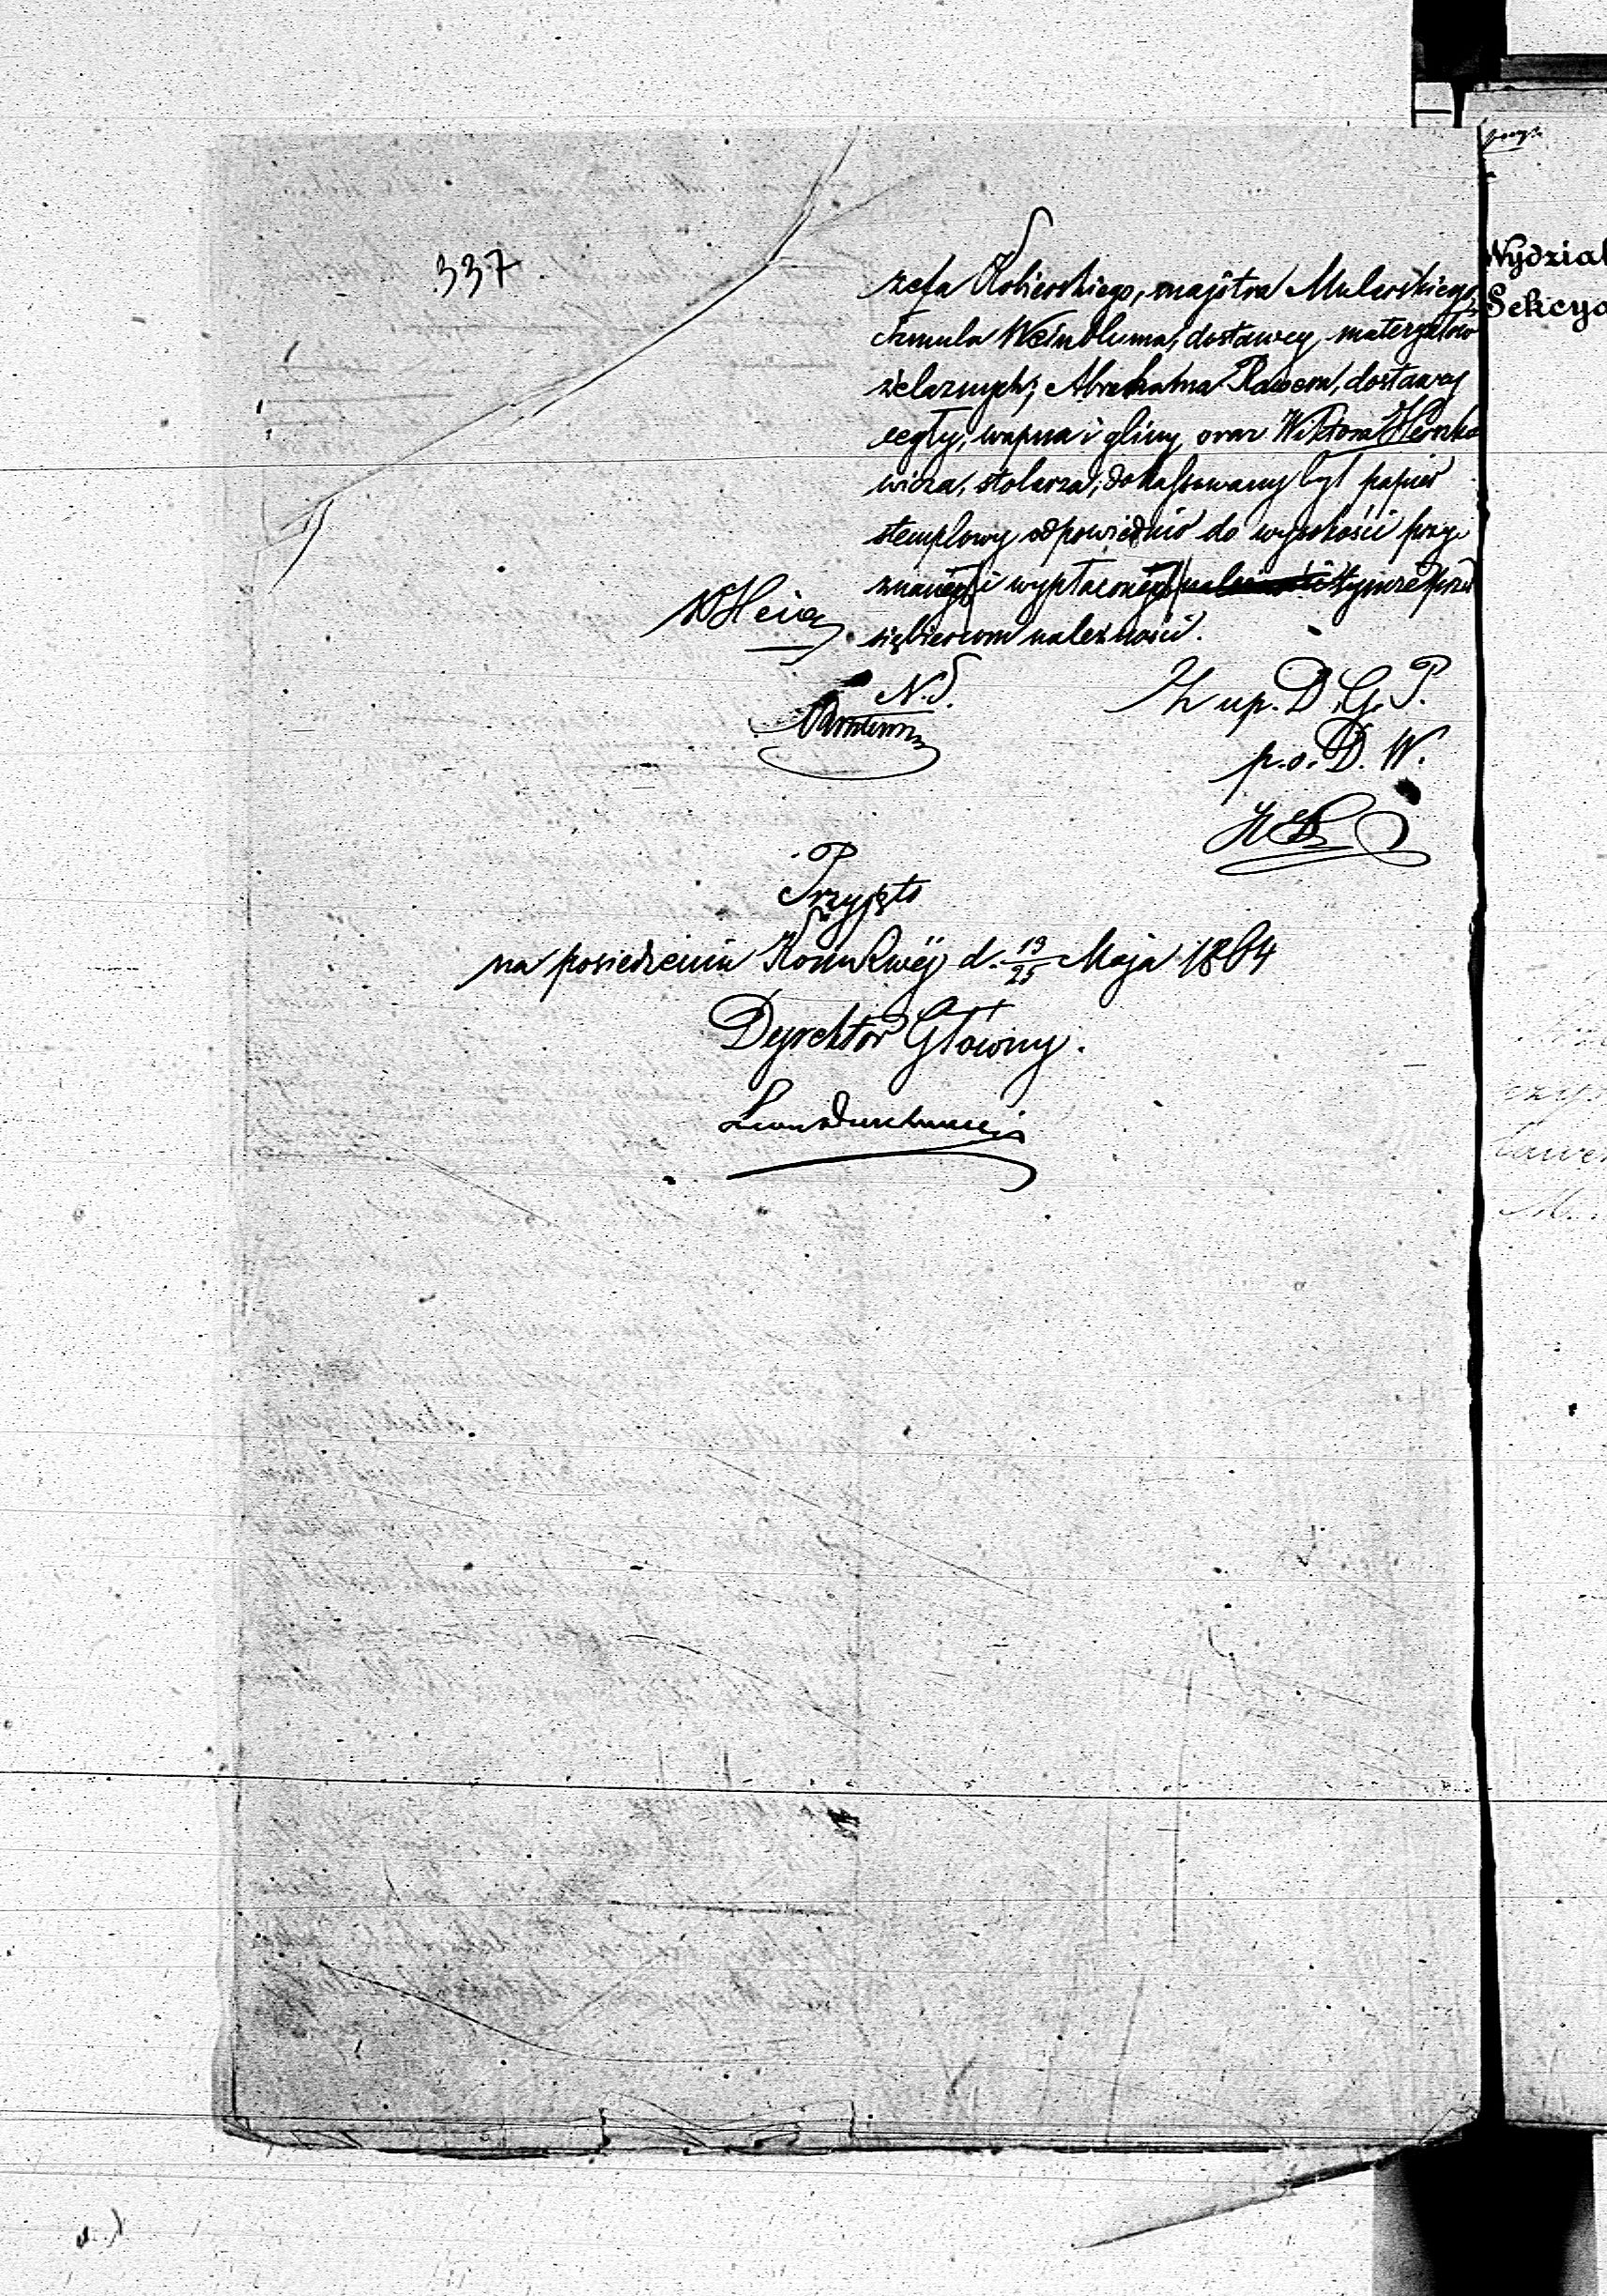 337
zefa Kobierskiego, majstra Mularskiego,
Szmula Weinbluma, dostawcy materyałów
żelaznych; Abrahama Rawem, dostawcy
cegły, wapna i gliny, oraz Wiktora Herszko
wicza, stolarza; dokassowany był papier
stemplowy odpowiednio do wysokości przy
znanej i wypłaconej tymże przed
siębiercom należności.
N. S.
Z up. D. G. P.
p. o. D. W.
Przyjęto
na posiedzeniu d. 13/25 Maja 1864
Dyrektor Główny.
Wydział
Sekcya